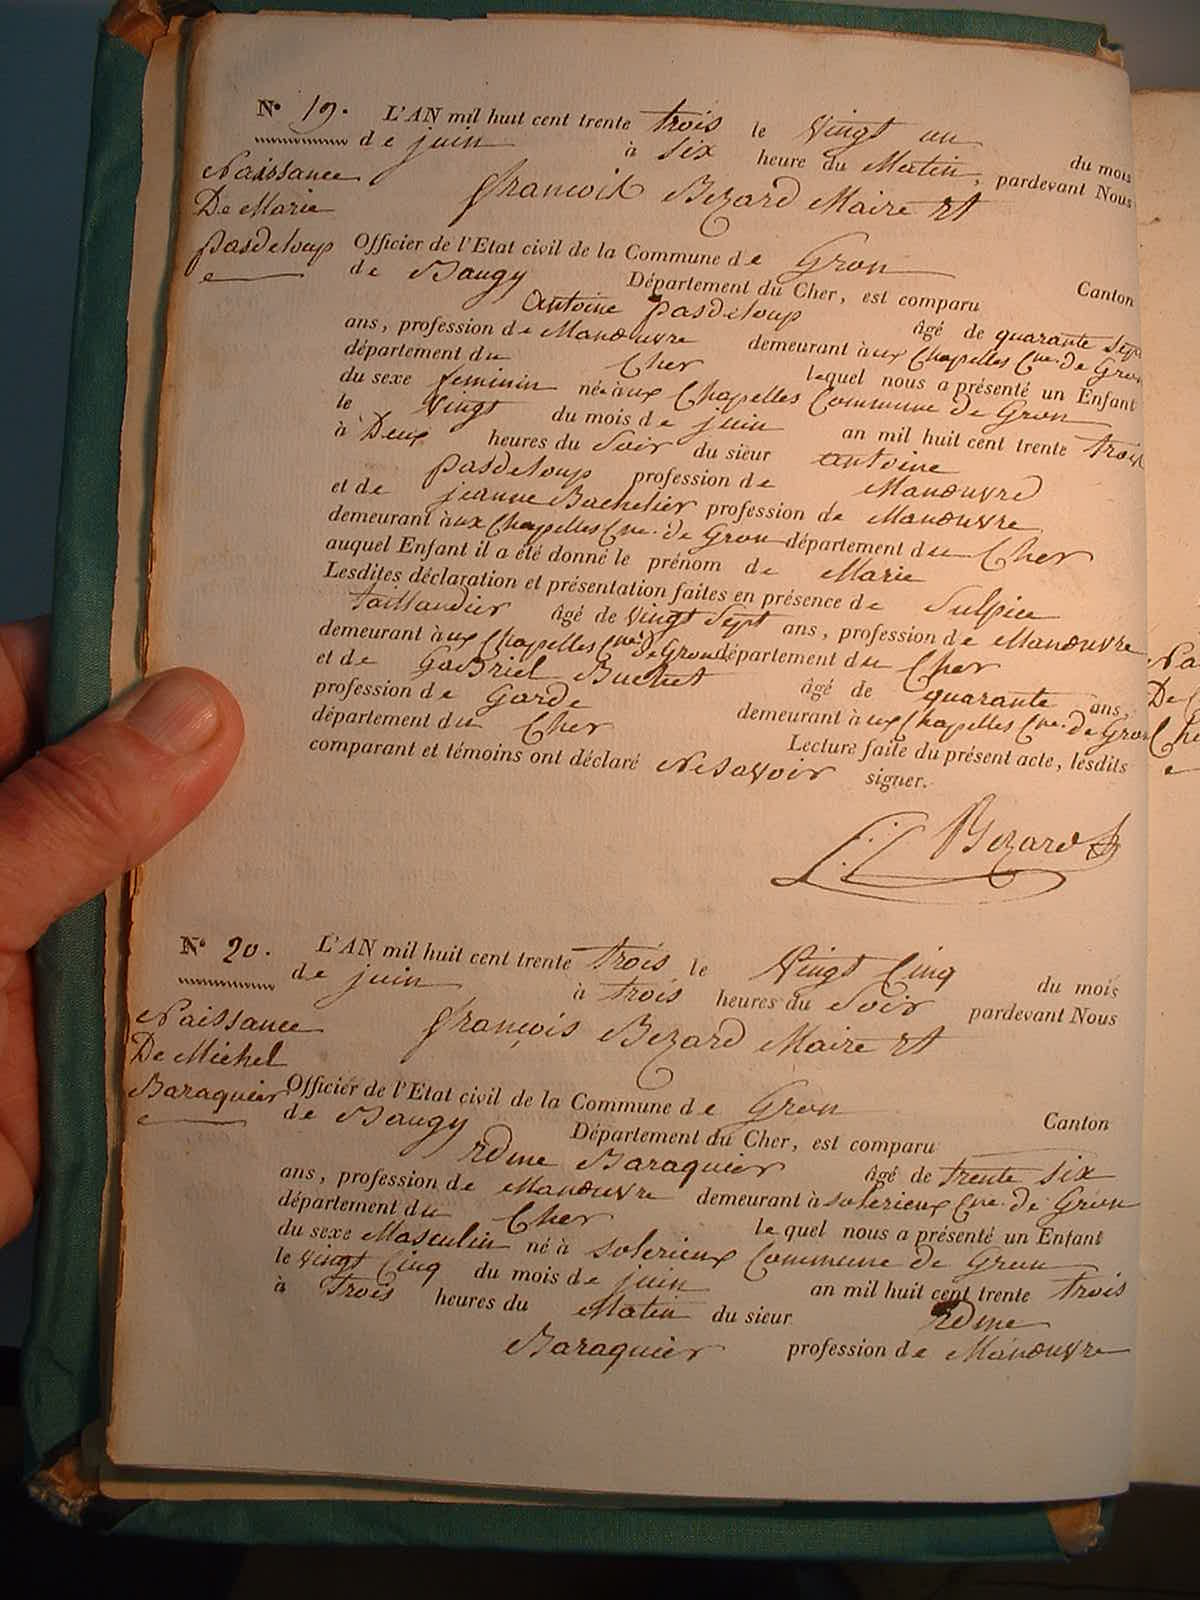 N.º 19. L'AN mil huit cent trente trois le vingt un du mois
de juin à six heure du Matin, pardevant Nous
Naissance
De Marie
pasdeloup
françois Bezard Maire et
Officier de l'Etat civil de la Commune de Gron Canton
de Baugy Département du Cher, est comparu
antoine pasdeloup âgé de quarante sept
ans, profession de Manœuvre demeurant à aux Chapelles Cne. de Gron
département du Cher lequel nous a présenté un Enfant
du sexe feminin née aux Chapelles Commune de Gron
le vingt du mois de juin an mil huit cent trente trois
à Deux heures du Soir du sieur antoine
pasdeloup profession de Manœuvre
et de jeanne Bachelier profession de Manœuvre
demeurant à aux Chapelles Cne. de Gron département du Cher
auquel Enfant il a été donné le prénom de Marie
Lesdites déclaration et présentation faites en présence de Sulpice
taillandier âgé de vingt sept ans, profession de Manœuvre
demeurant à aux Chapelles Cne. de Gron département du Cher
et de Gabriel Buchet âgé de quarante ans,
profession de Garde demeurant à aux Chapelles Cne. de Gron
département du Cher Lecture faite du présent acte, lesdits
comparant et témoins ont déclaré Ne Savoir signer.
Bezard
N.º 20. L'AN mil huit cent trente trois le vingt Cinq du mois
de juin à trois heures du Soir pardevant Nous
Naissance
De Michel
Baraquier
françois Bezard Maire et
Officier de l'Etat civil de la Commune de Gron Canton
de Baugy Département du Cher, est comparu
Edme Baraquier âgé de trente six
ans, profession de Manœuvre demeurant à solerieux Cne. de Gron
département du Cher lequel nous a présenté un Enfant
du sexe Masculin né à solerieux Commune de Gron
le vingt Cinq du mois de juin an mil huit cent trente trois
à Trois heures du Matin du sieur Edme
Baraquier profession de Manœuvre